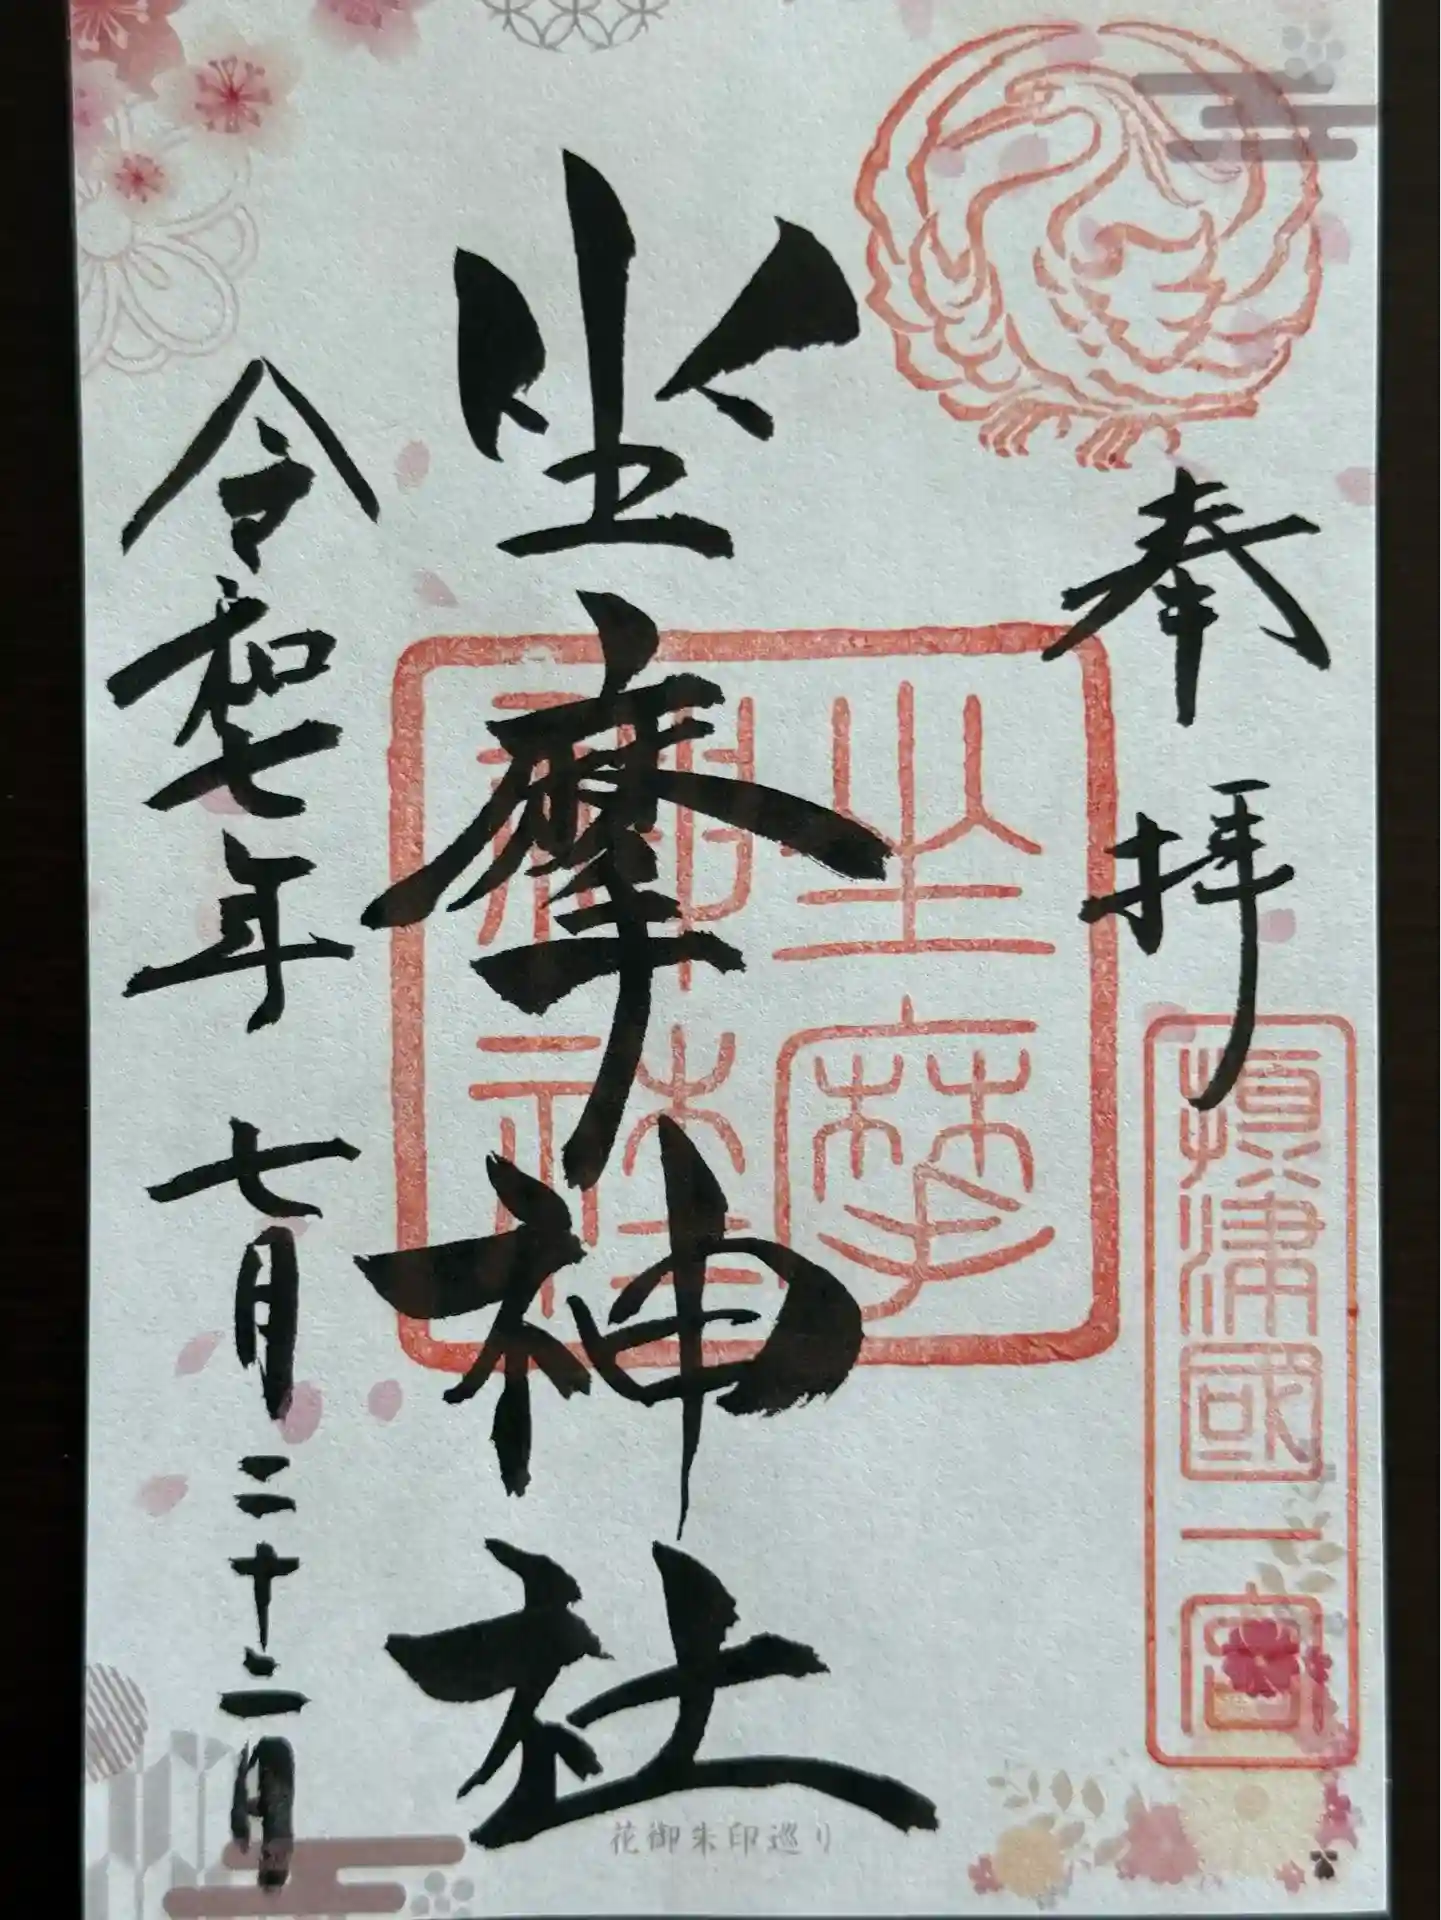 奉拝
摂津國一宮
坐摩神社
坐摩神社
令和七年 七月二十二日
花御朱印巡り